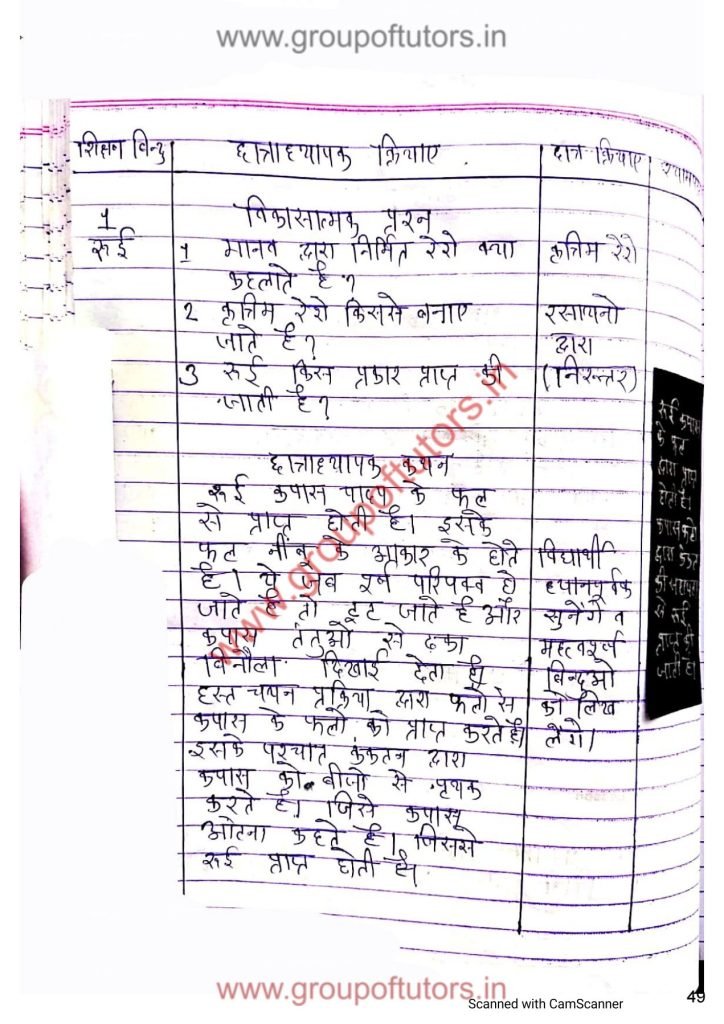 www.groupoftutors.in
शिक्षण विन्दु
छात्राध्यापक क्रियाए
छात्र क्रियाए
1
रूई
विकासात्मक प्रश्न
1 मानव द्वारा निर्मित रेशे क्या
कहलाते है ?
कृत्रिम रेशे
2 कृत्रिम रेशे किससे बनाए
जाते है ?
रसायनो
द्वारा
3 रूई किस प्रकार प्राप्त की
जाती है ?
(निरन्तर)
छात्राध्यापक कथन
रूई कपास पादप के फल
से प्राप्त होती है। इसके
फल नींबू के आकार के होते
है। ये जब पूर्ण परिपक्व हो
जाते है तो टूट जाते है और
कपास तंतुओ से ढका
विनौला दिखाई देता है।
हस्त चयन प्रक्रिया द्वारा फलो से
कपास के फलो को प्राप्त करते है।
इसके पश्चात कंकतन द्वारा
कपास को बीजो से पृथक
करते है। जिसे कपास
ओटना कहते है। जिससे
रूई प्राप्त होती है।
विद्यार्थी
ध्यानपूर्वक
सुनेंगे व
महत्वपूर्ण
बिन्दुओ
को लिख
लेंगे।
रूई कपास
के फल
द्वारा प्राप्त
होती है।
द्वारा
से रूई
प्राप्त की
जाती है।
www.groupoftutors.in
www.groupoftutors.in
49
Scanned with CamScanner